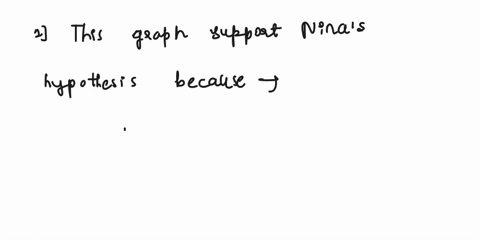 2] This graph support Nina's
hypothesis because →